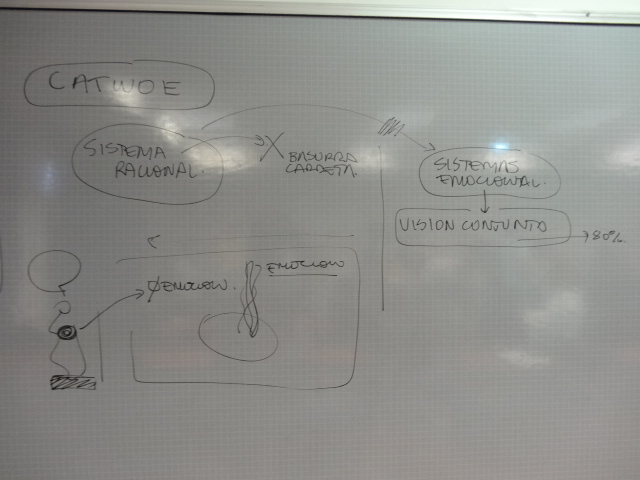 CATWOE
SISTEMA
RACIONAL.
BASURRA
CARPETA.
SISTEMAS
EMOCIONAL.
VISION CONJUNTO
80%.
EMOCION
EMOCION.